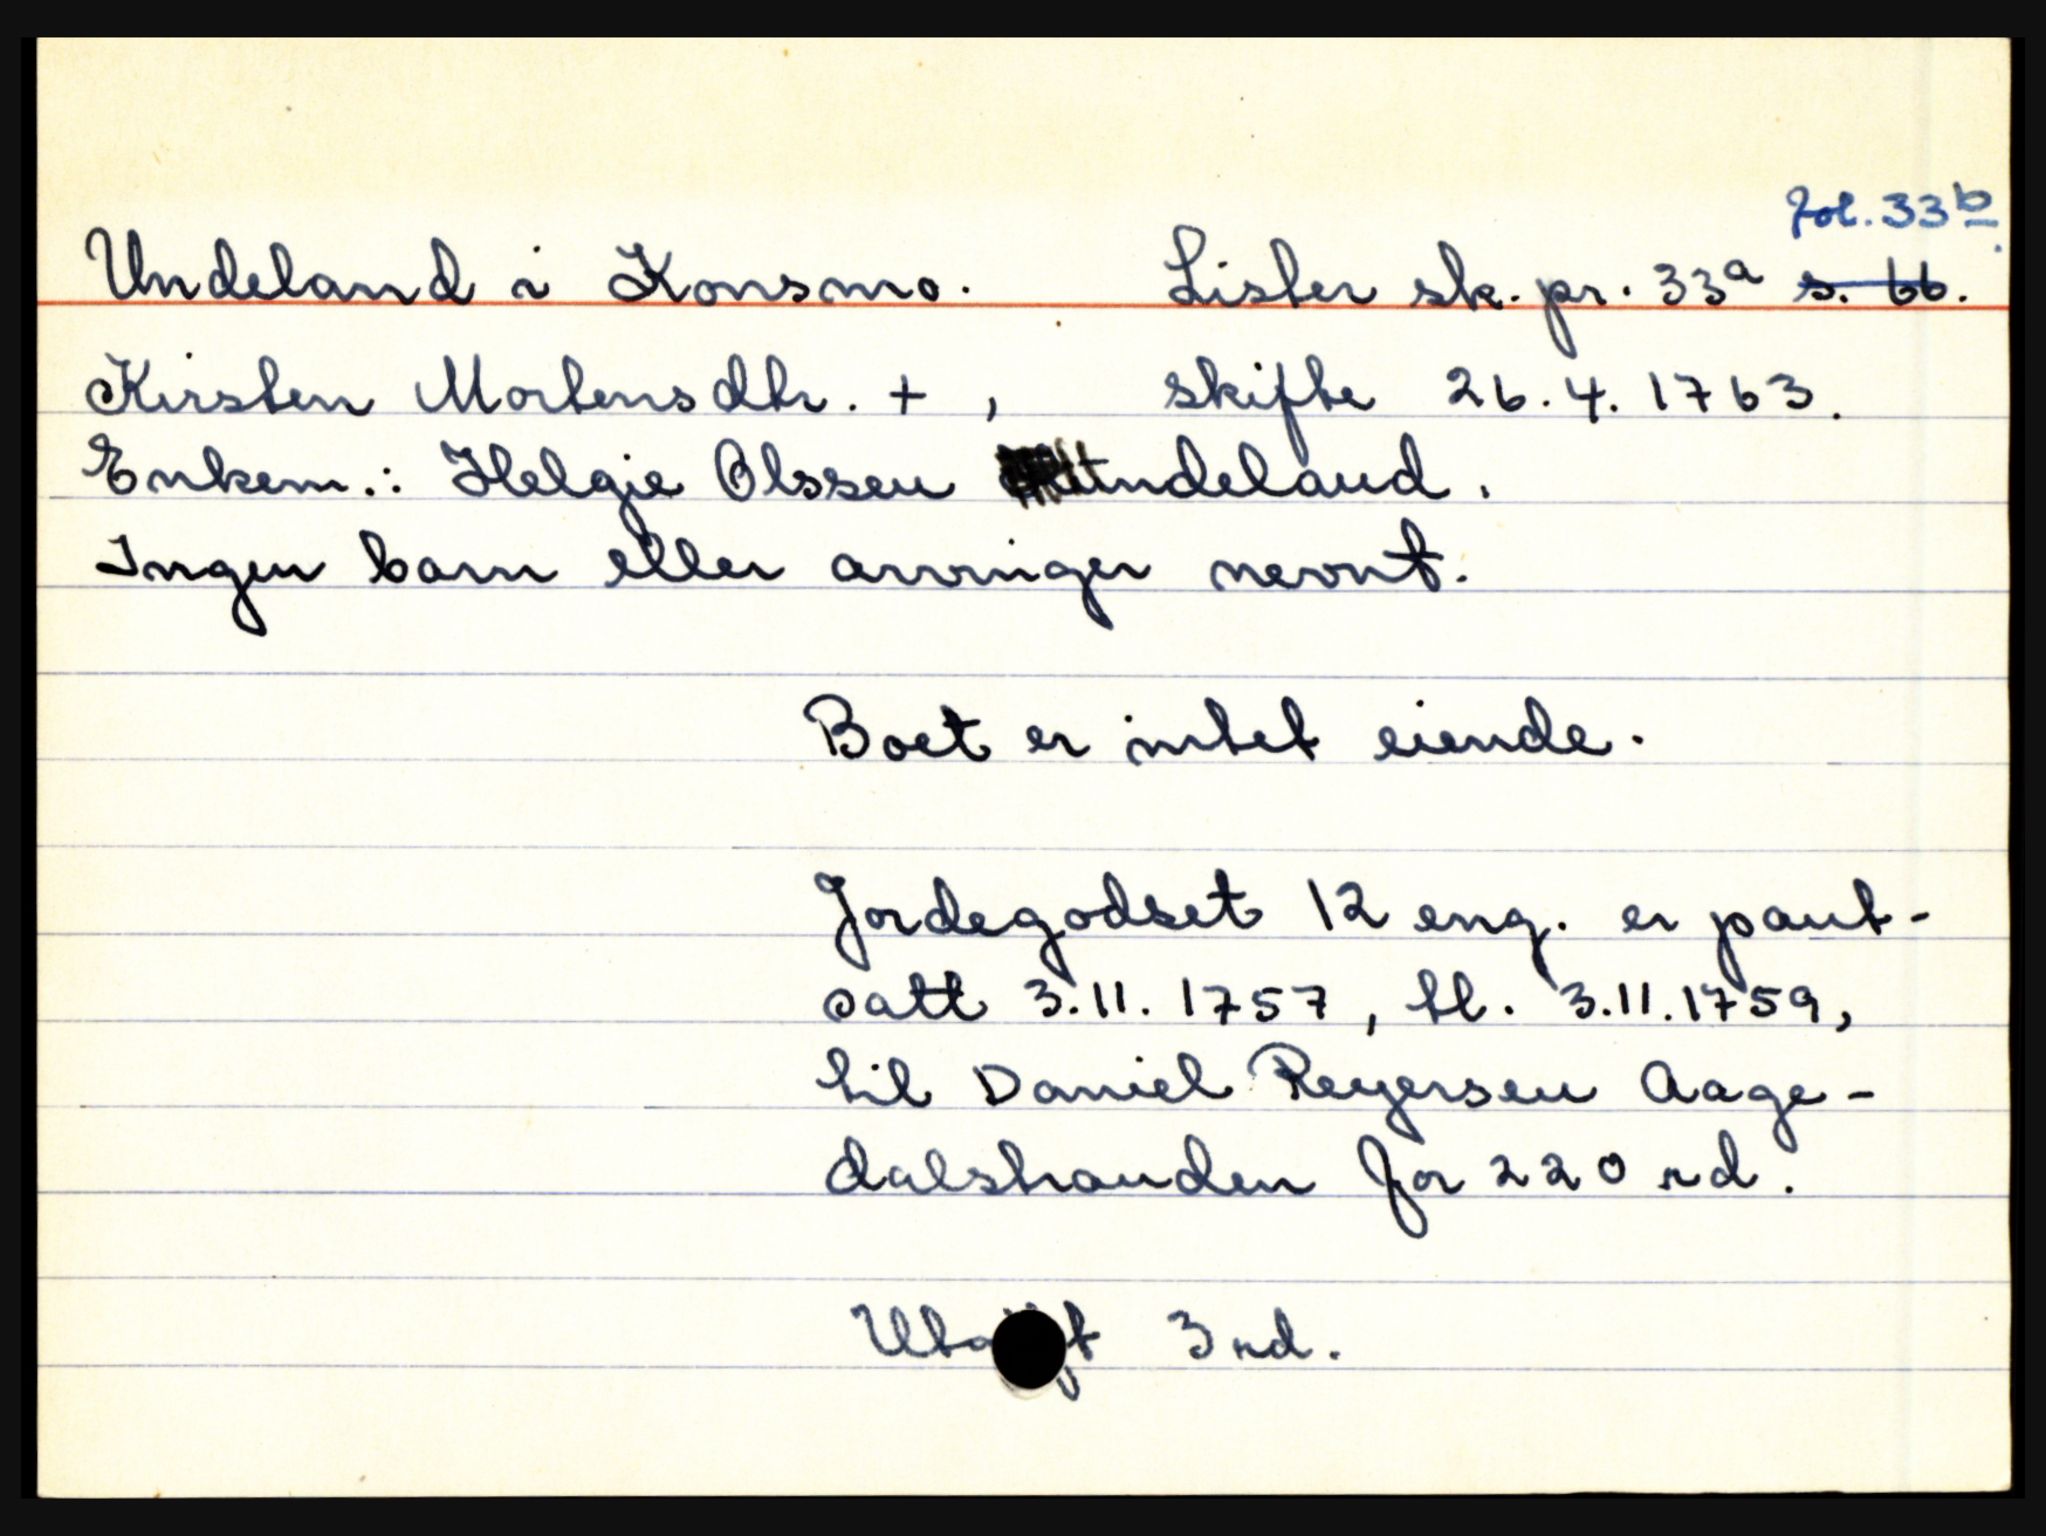 fol. 33b.
Undeland i Konsmo. Lister sk. pr. 33a s. 66.
Kirsten Mortensdtr. + , skifte 26.4.1763.
Enkem.: Helgie Olssen Undeland.
Ingen barn eller arvinger nevnt.
Boet er intet eiende.
Jordegodset 12 eng. er pant-
satt 3.11.1757, tl. 3.11.1759,
til Daniel Reyersen Aage-
dalstranden for 220 rd.
3 rd.